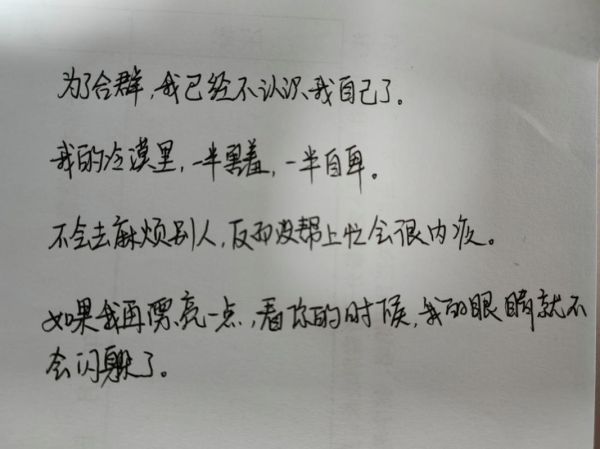 为了合群，我已经不认识我自己了。
我的冷漠里，一半害羞，一半自卑。
不会去麻烦别人，反而没帮上忙会很内疚。
如果我再漂亮一点，看你的时候，我的眼睛就不
会闪躲了。